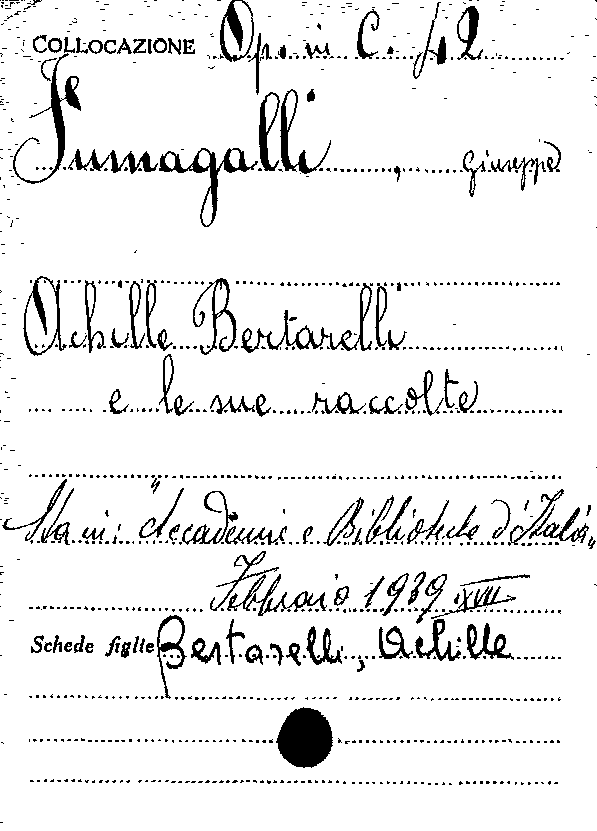 COLLOCAZIONE Op. in C. 42
Fumagalli, Giuseppe
Achille Bertarelli
e le sue raccolte
Sta in: "Accademie e Biblioteche d'Italia"
Febbraio 1939 XVII
Schede figlie Bertarelli, Achille